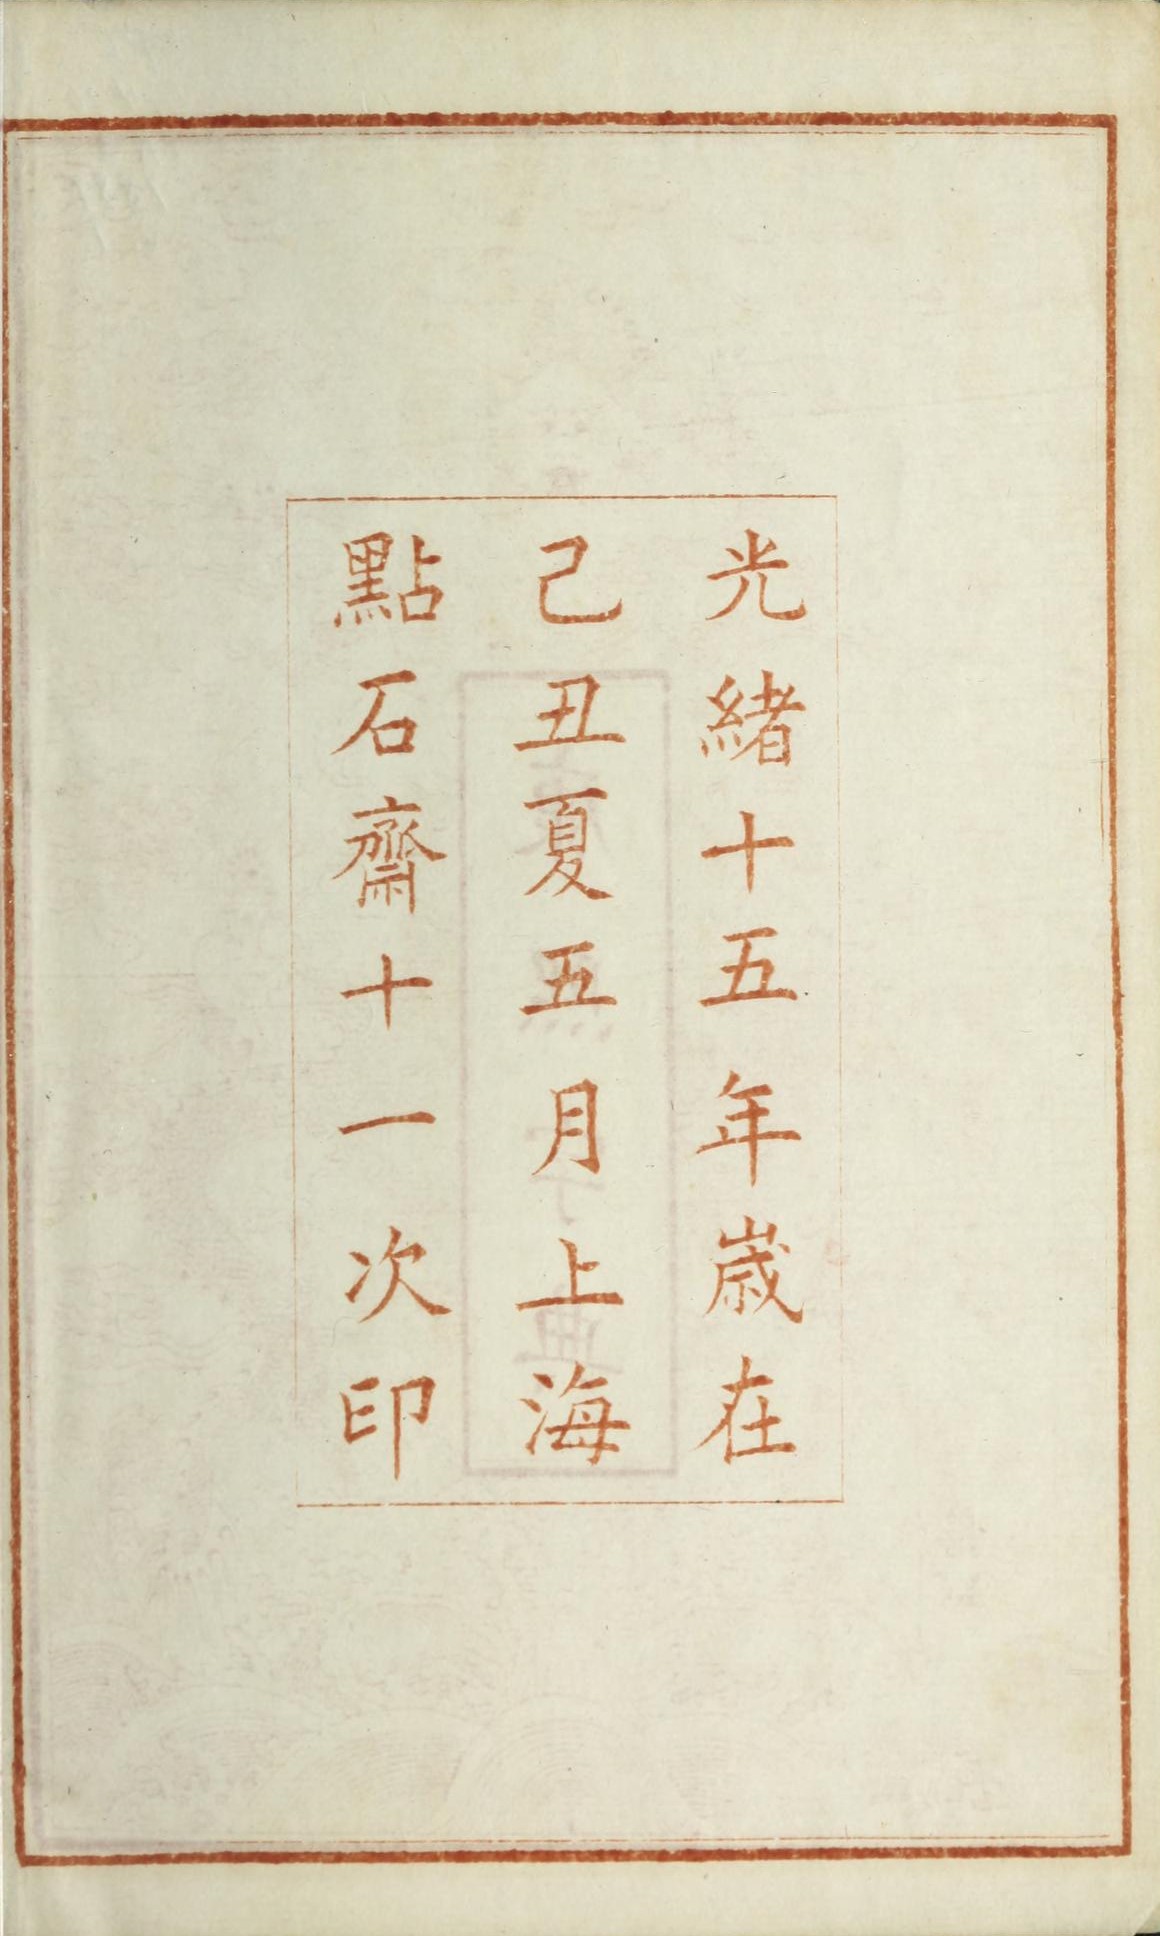 光緒十五年歲在
己丑夏五月上海
點石齋十一次印